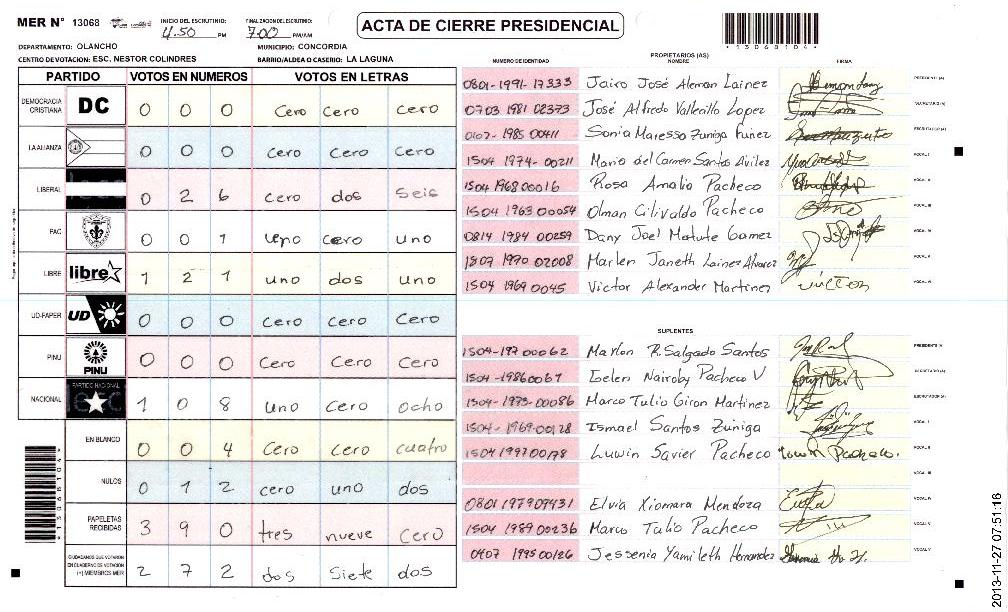 MER N° 13068 INICIO DEL ESCRUTINIO: 4:50 PM FINALIZACION DEL ESCRUTINIO: 7:00 PM/AM ACTA DE CIERRE PRESIDENCIAL
*13068104*
DEPARTAMENTO: OLANCHO MUNICIPIO: CONCORDIA
CENTRO DE VOTACION: ESC. NESTOR COLINDRES BARRIO/ALDEA O CASERIO: LA LAGUNA
PARTIDO VOTOS EN NUMEROS VOTOS EN LETRAS
DEMOCRACIA CRISTIANA DC 0 0 0 Cero Cero Cero
LA ALIANZA 0 0 0 Cero Cero Cero
LIBERAL 0 2 6 Cero dos Seis
PAC 0 0 1 Cero uno
LIBRE libre 1 2 1 uno dos uno
UD-FAPER UD 0 0 0 Cero Cero Cero
PINU PINU 0 0 0 Cero Cero Cero
NACIONAL PARTIDO NACIONAL 1 0 8 uno Cero ocho
EN BLANCO 0 0 4 Cero Cero cuatro
NULOS 0 1 2 cero uno dos
PAPELETAS RECIBIDAS 3 9 0 tres nueve Cero
CIUDADANOS QUE VOTARON EN CUADERNO DE VOTACIÓN (+) MIEMBROS MER 2 7 2 dos Siete dos
PROPIETARIOS (AS)
NUMERO DE IDENTIDAD NOMBRE FIRMA
0801-1991-17333 Jairo José Aleman Lainez PRESIDENTE (A)
0703 1981 02373 José Alfredo Vallecillo Lopez SECRETARIO (A)
0107-1985 00411 Sonia Maresso Zuniga Funez ESCRUTADOR (A)
1504 1974-00211 Mario del Carmen Santos Avilez VOCAL I
1504 1968 00016 Rosa Amalia Pacheco VOCAL II
1504 1963 00054 Olman Cilivaldo Pacheco VOCAL III
0814 1984 00259 Dany Joel Matute Gamez VOCAL IV
1807 1970 02008 Marlen Janeth Lainez Alvarez VOCAL V
1504 1969 0045 Victor Alexander Martinez victor VOCAL VI
SUPLENTES
1504-197 00062 Marlon R. Salgado Santos PRESIDENTE (A)
1504-1986 0067 Nairoby Pacheco V SECRETARIO (A)
1504-1973-00086 Marco Tulio Giron Martinez ESCRUTADOR (A)
1504-1969-00128 Ismael Santos Zúniga VOCAL I
1504 1997 00178 Luwin Savier Pacheco Pacheco. VOCAL II
VOCAL III
0801 1979 09431 Elvia Xiomara Mendoza VOCAL IV
1504 1989 00236 Marco Tulio Pacheco VOCAL V
0407 1995 00126 Jessenia Yamileth Hernandez VOCAL V
2013-11-27 07:51:16